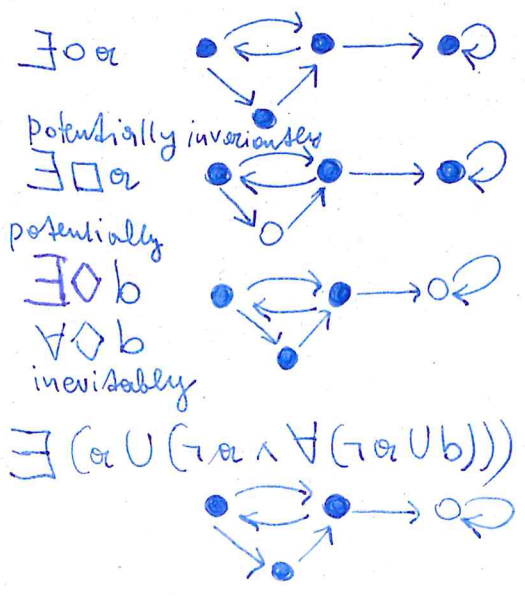 ∃○a
potentially invariantly
∃□a
potentially
∃◇b
∀◇b
inevitably
∃(a U (¬a ∧ ∀(¬a U b)))